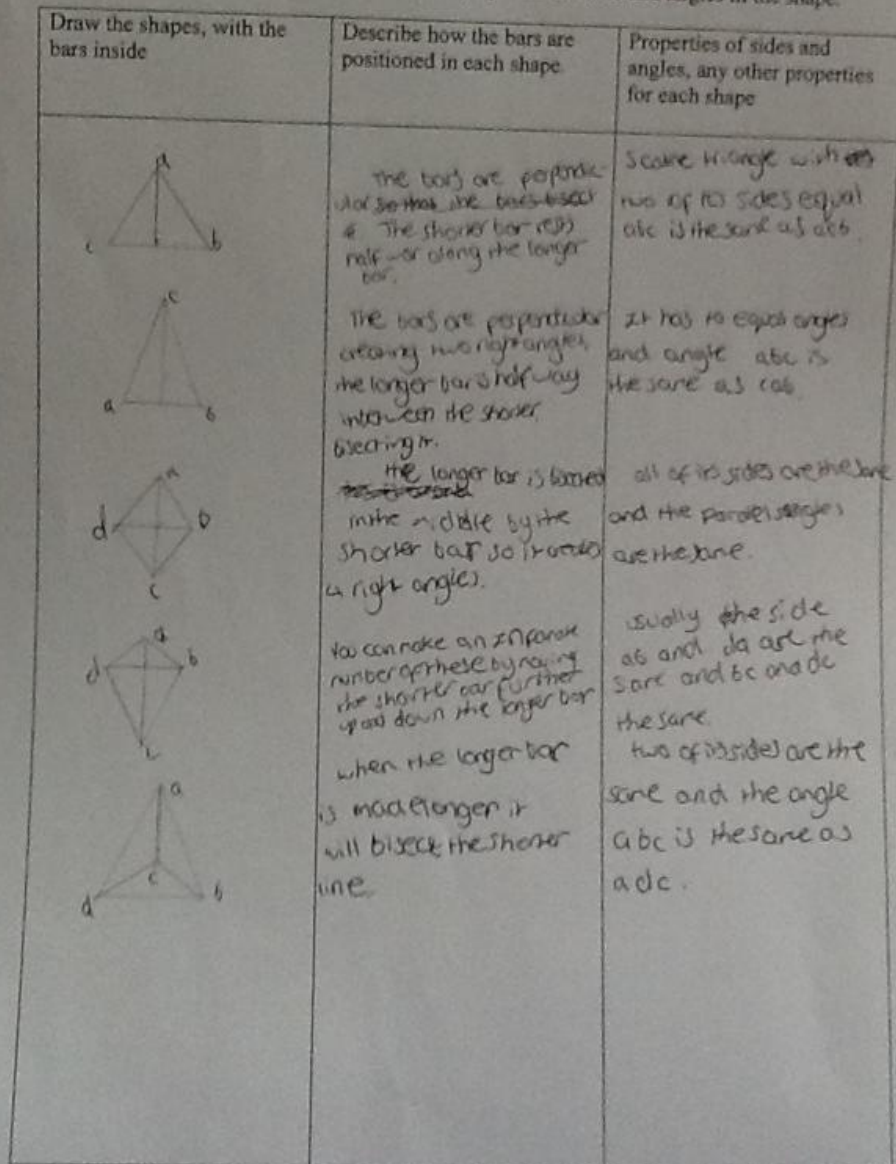 angles in the shape.
Draw the shapes, with the
bars inside
Describe how the bars are
positioned in each shape
Properties of sides and
angles, any other properties
for each shape
a
c
b
The bars are perpendic
ular so that the bars bisect
The shorter bar rests
half way along the longer
bar.
Scalene triangle with
two of its sides equal
abc is the same as
c
a
b
The bars are perpendicular
creating two right angles,
the longer bar is half way
inbetween the shorter
bisecting it.
It has to equal angles
and angle abc is
the same as cab.
a
d
b
c
the longer bar is bisected
in the middle by the
shorter bar so it creates
4 right angles.
all of its sides are the same
and the angles
are the same.
a
d
b
c
You can make an
number of these by moving
the shorter bar further
up and down the longer bar
usually the side
ab and da are the
same and bc and dc
the same.
a
c
d
b
when the longer bar
is made longer it
will bisect the shorter
line.
two of its sides are the
same and the angle
abc is the same as
adc.